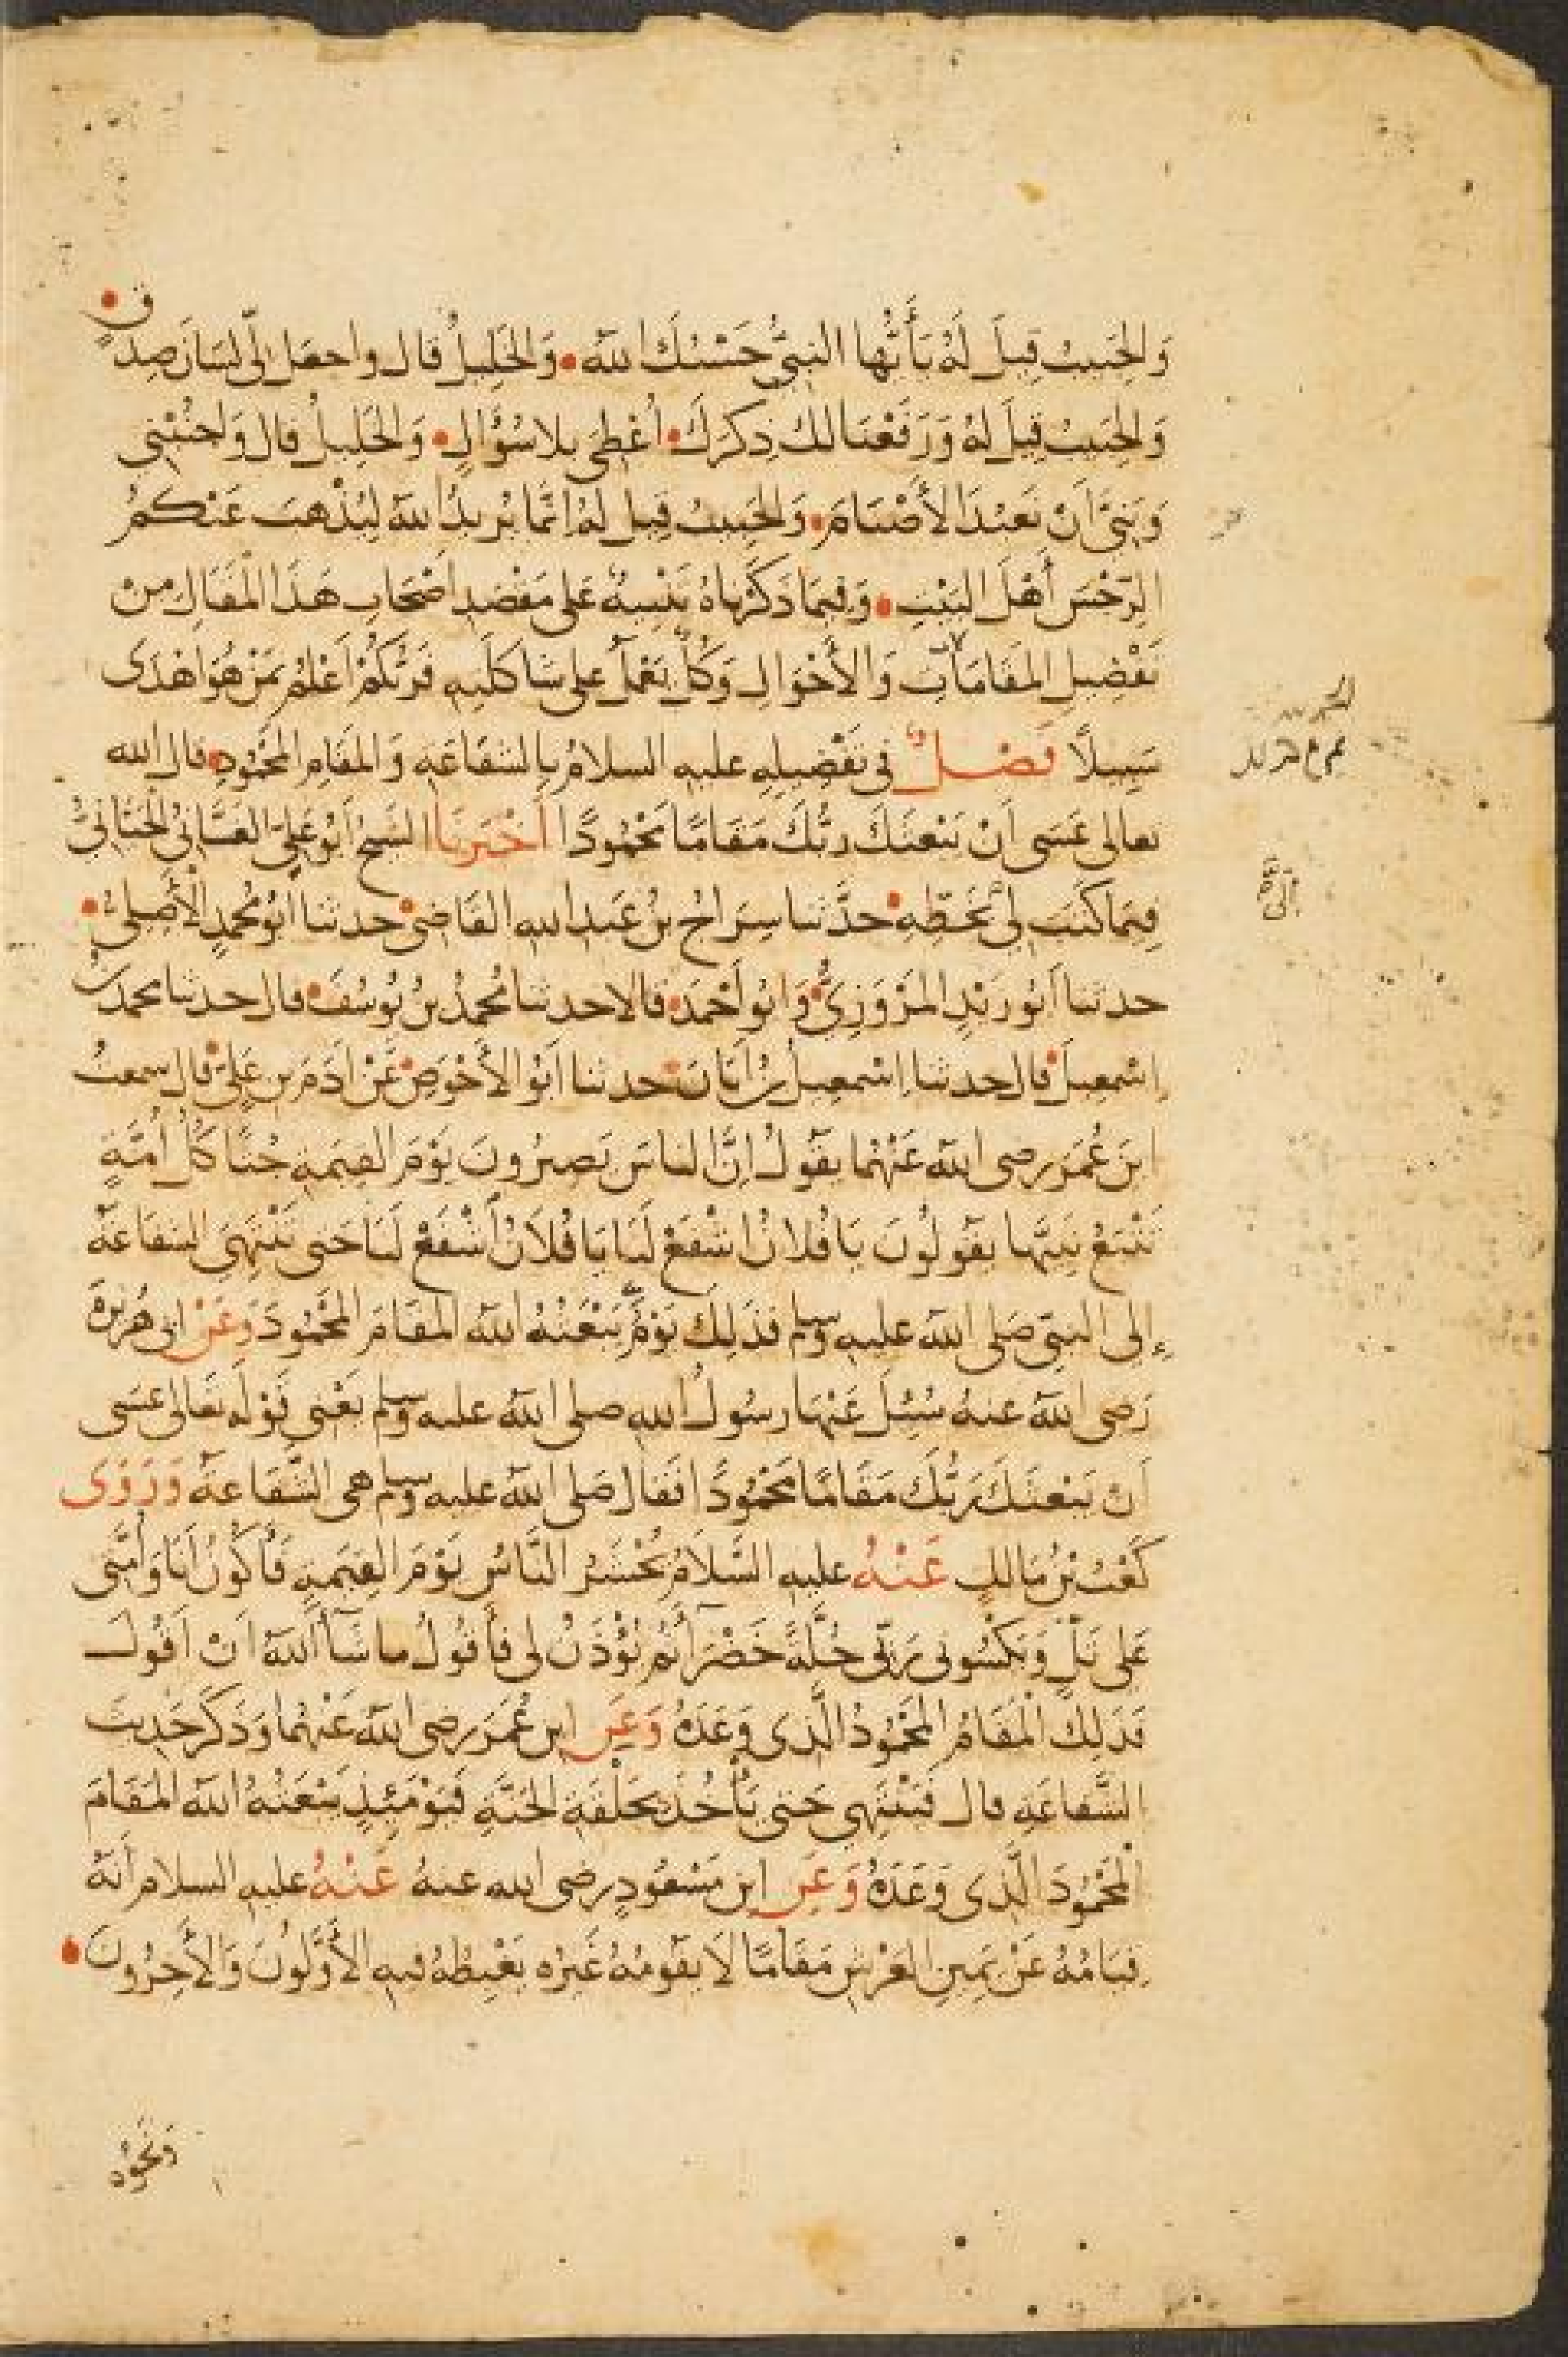 وَالحَبيبُ قِيلَ لَهُ يَأَيُّها النبيُّ حَسْبُكَ اللهُ • وَالخَلِيلُ قال واجعل لى لسَانَ صِدقٍ •
وَالحَبيبُ قِيلَ لهُ وَرَفَعْنَا لك ذِكرَكَ • أُعْطِىَ بلا سُؤَالٍ • وَالخَلِيلُ قال وَاجنُبْنِى
وَبَنِىَّ اَنْ نَعبُدَ الأَصْنَامَ • وَالحَبيبُ قِيلَ لهُ اِنَّما يُريدُ اللهُ لِيُذْهِبَ عَنكُمُ
الرِّجْسَ أَهْلَ البَيْتِ • وَفِيمَا ذَكَرْناهُ تَنْبِيهٌ عَلى مَقْصَدِ اَصْحَابِ هَذَا المَقَالِ مِنْ
تَفْضِيلِ المَقَامَاتِ وَالأَحْوَالِ وَكُلٌّ يَعْمَلُ على شَاكلَتِهِ فَرَبُّكُمْ اَعْلَمُ بمَنْ هُوَ اَهْدَى
سَبِيلًا فَصْلٌ فى تَفْضِيلِهِ عليه السلامُ بِالشفَاعَةِ وَالمَقَامِ المَحْمُودِ • قال الله
تعالى عَسَى اَنْ يَبْعَثَكَ رَبُّكَ مَقَامًا مَحْمُودًا اَخْبَرنَا الشيخُ اَبُو عَلِىٍّ الغَسَّانِىُّ الجَيَّانِىُّ
فِيمَا كَتَبَ لِى بخَطِّهِ • حدَّثنا سِرَاجُ بنُ عَبدِ اللهِ القَاضِى • حدثنا اَبُو مُحمدٍ الأَصِيلىُّ •
حدثنا اَبُو زَيْدٍ المَرْوَزِىُّ • وَابو اَحْمَدَ • قالا حدثنا مُحمدُ بنُ يُوسُفَ • قال حدثنا محمد بنُ
اِسْمعِيلَ • قال حدثنا اِسْمعِيلُ بنُ اَبَانَ • حدثنا اَبُو الأَحْوَصِ • عَنْ اَدَمَ بنِ عَلِىٍّ • قال سمعتُ
ابنَ عُمَرَ رضى اللهُ عَنْهُما يَقُولُ اِنَّ الناسَ يَصِيرُونَ يَوْمَ القِيمَةِ جُثًا كُلُّ اُمَّةٍ
تَتْبَعُ نَبيَّها يَقُولُونَ يَا فُلانُ اشْفَعْ لَنَا يَا فُلَانُ اَشْفَعْ لَنَا حَتى تَنْتَهِىَ الشفَاعَةُ
إِلى النبىِّ صَلى اللهُ عليه وسلم فذَلِكَ يَوْمَ يَبْعَثُهُ اللهُ المقَامَ المَحْمُودَ وَعَنْ ابى هُرَيرَةَ
رَضى اللهُ عنهُ سُئِلَ عَنْهَا رسُولُ اللهِ صلى اللهُ عليه وسلم يَعْنى قَوْلَه تعَالى عَسَى
اَنْ يَبْعَثَكَ رَبُّكَ مَقَامًا مَحْمُودًا فَقال صَلى اللهُ عليه وسلم هى الشَّفَاعَةُ وَرَوَى
كَعْبُ بْنُ مَالكٍ عَنْهُ عليه السَّلامُ يُحْشَرُ النَّاسُ يَوْمَ القِيمَةِ فَأَكُونُ اَنَا وَأُمَّتِى
عَلى تَلٍّ وَيَكْسُونى رَبِّى حُلَّةً خَضْرَآءَ ثُم يُؤْذَنُ لى فأَقُولُ ما شَآءَ اللهُ اَنْ اَقُولَ
فذَلِكَ الْمَقَامُ المَحْمُودُ الَّذِى وَعَدَهُ وَعَنِ ابنِ عُمَرَ رضى اللهُ عَنْهُما وَذَكَرَ حَدِيثَ
الشَّفاعَةِ قال فَيَنْتَهِى حَتى يَأْخُذَ بحَلْقَةِ الجَنَّةِ فَيَوْمَئِذٍ يَبْعَثُهُ اللهُ المَقَامَ
الْمَحْمُودَ الَّذِى وَعَدَهُ وَعَنِ ابنِ مَسْعُودٍ رضى الله عنهُ عَنْهُ عليه السلام اَنهُ
قِيَامُهُ عَنْ يَمِينِ العَرْشِ مَقَامًا لَا يَقُومُهُ غَيْرُه يَغْبِطُهُ فيهِ الأَوَّلُونَ وَالأَخِرُونَ •
وَنَحْوُه